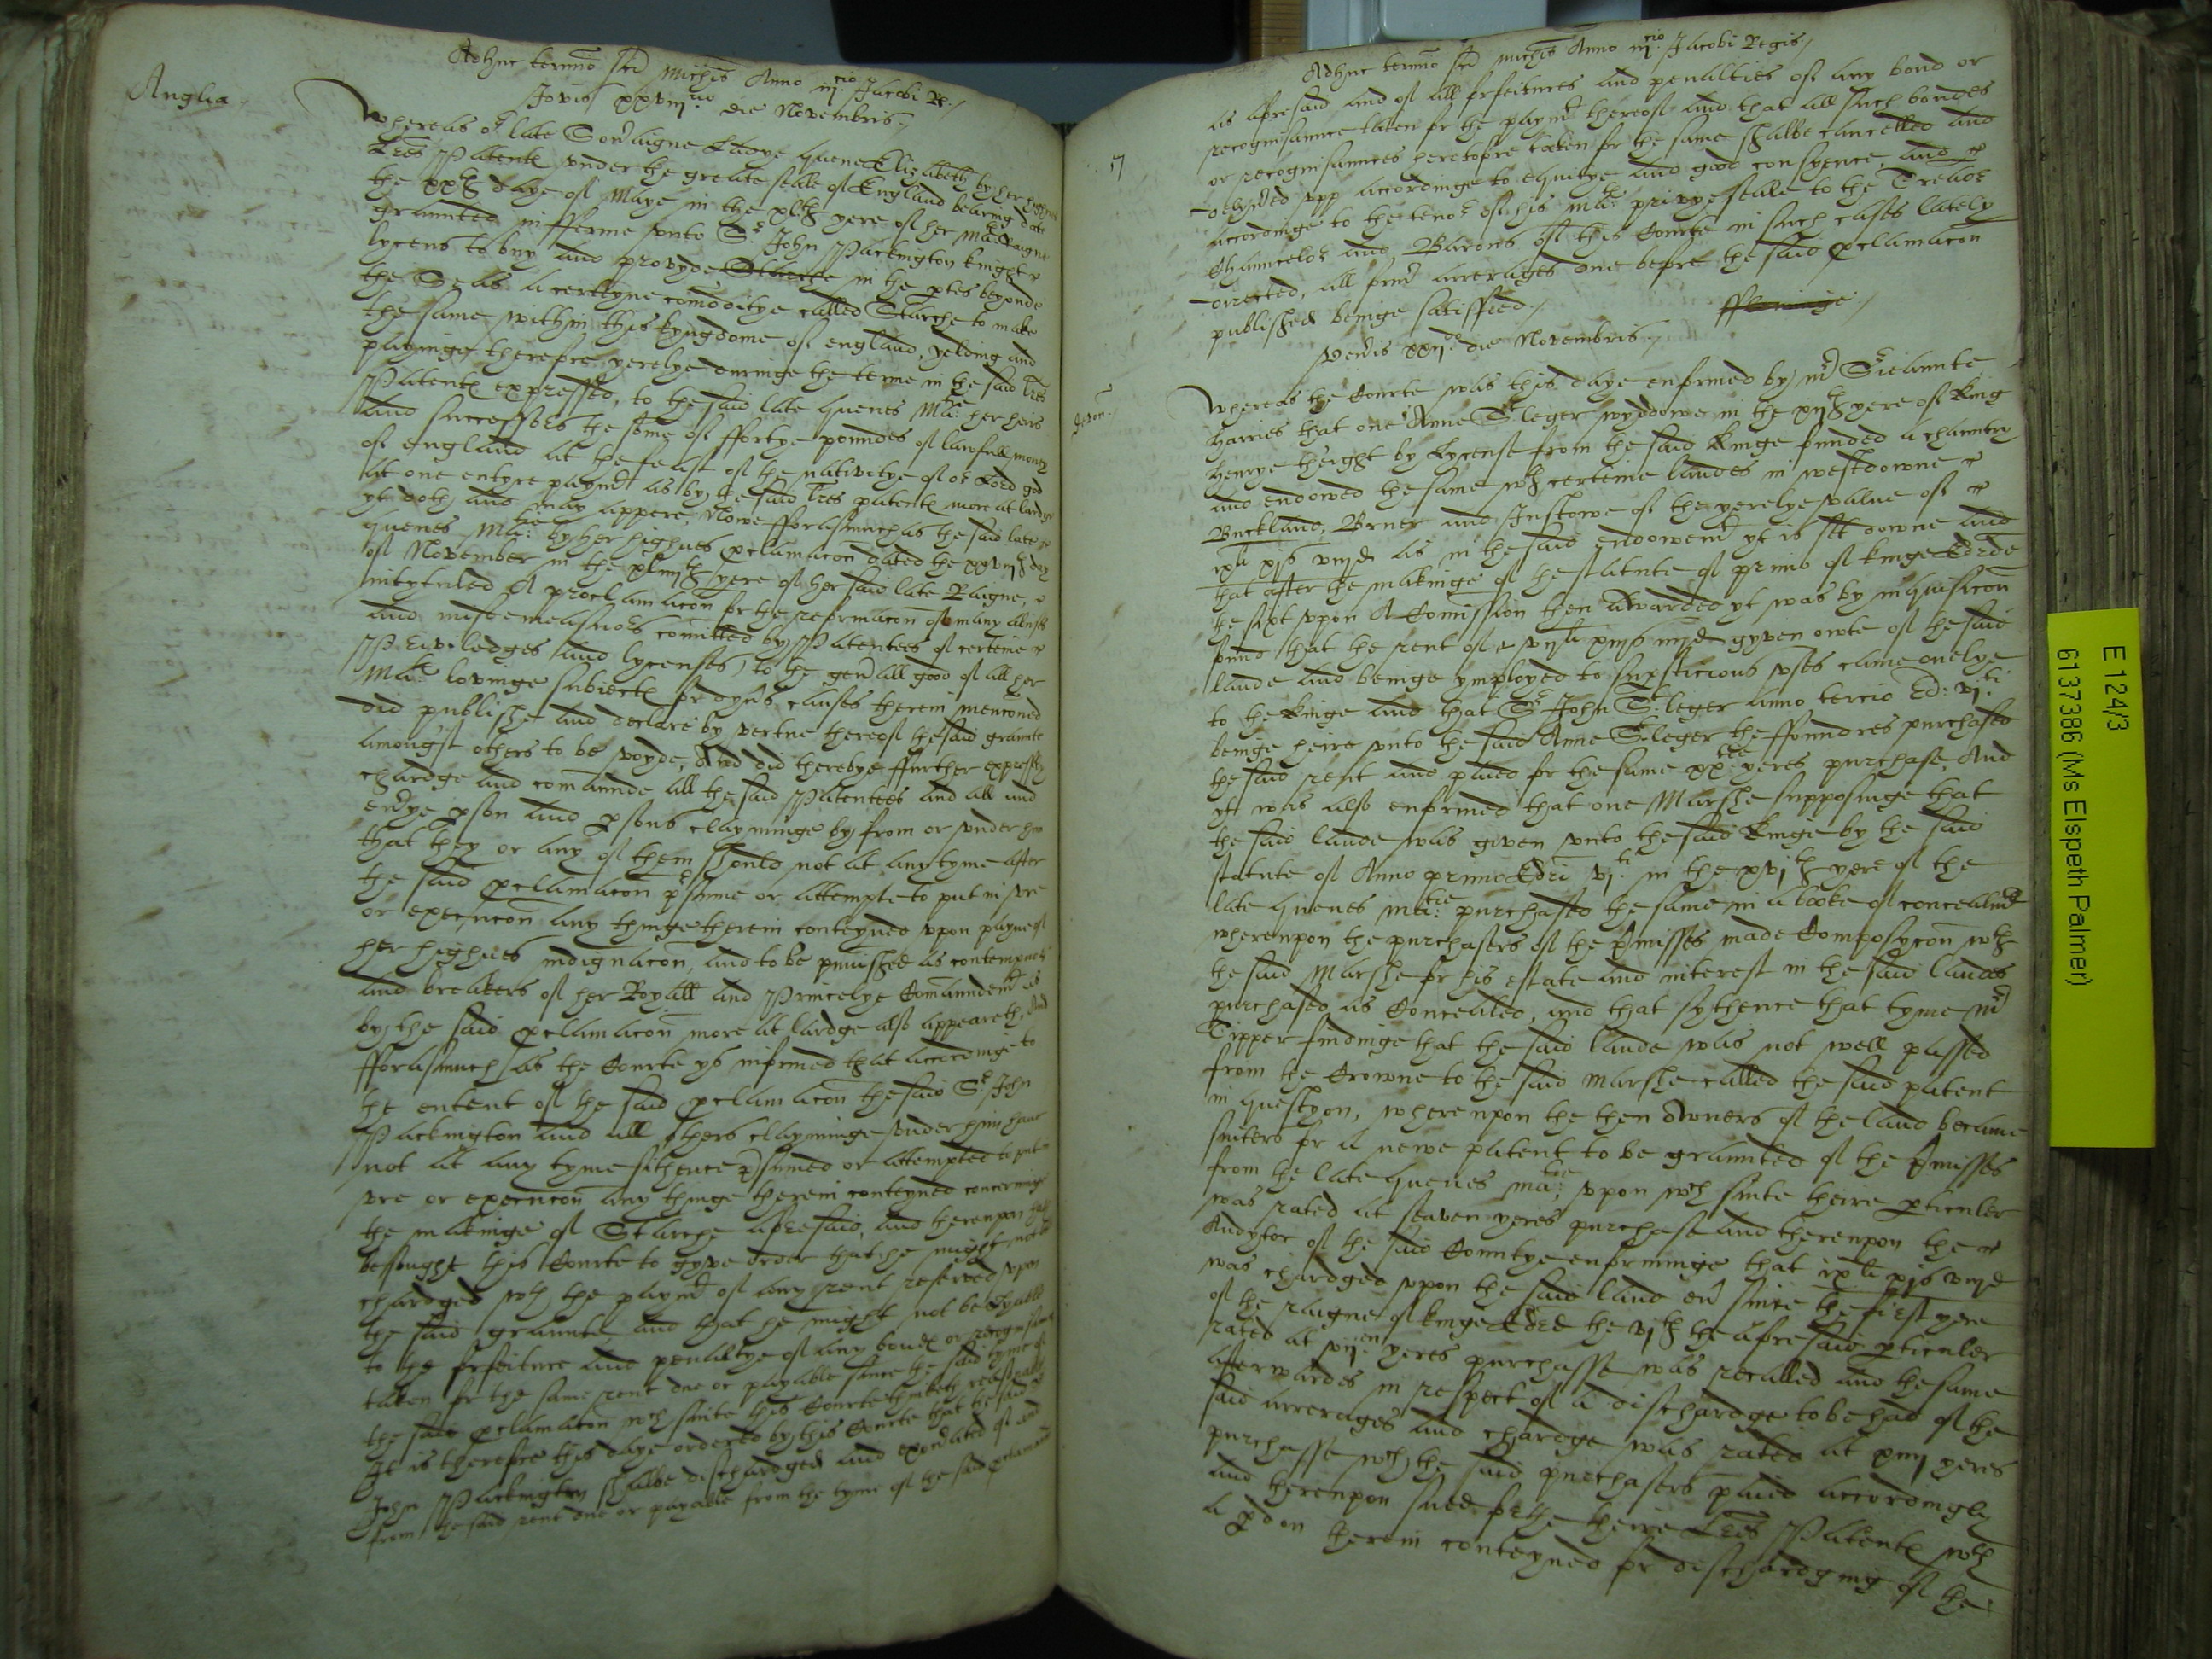 Adhuc termino sci Michis Anno iij cio Jacobi R
Jovis xxviij die Novembris
Anglia
Whereas or late Sov'aigne Ladye Quene Elizabeth by her highnes
Lres Patente under the greate seale of England bearing date
the xxth daye of Maye in the xlth yere of her Mats Raigne
graunted in fferme unto Sr John Packington knight
lycens to buy and provyde Starche in the ptes beyonde
the Seas a certeyne comoditye called Starche to make
the same within this kyngdome of england, yelding and
payinge therefore yerelye duringe the terme in the said lres
Patente expressed, to the said late quenes Matie her heirs
and successors the some of ffortye poundes of lawfull money
of england at the feast of the nativitye of or Lord god
at one entyre paymt as by the said lres patente more at lardge
yt doth and may appere, Nowe fforasmuchas the said late
quenes Matie by her highnes pclamacon dated the xxviijth day
of November in the xliiijth yere of her said late Raigne,
intytuled A proclamacon for the reformacon of many abuses
and misdemeasnors comitted by Patentees of certeine
Priviledges and lycenses to the gen'all good of all her
Mats lovinge subiecte for dyv's causes therein menconed
did publishe and declare by vertue thereof the said graunte
amongst others to be voyde, And did thereby ffurther expressly
chardge and comaunde all the said Patentees and all and
ev'ye pson and psons clayminge by from or under him
that they or any of them should not at any tyme after
the said pclamacon psume or attempte to put in ure
or execucon any thinge therein conteyned upon payne of
her highnes indignacon, and to be punished as contempners
and breakers of her Royall and Princelye Comaundemt as
by the said pclamacon more at lardge also appeareth, And
fforasmuch as the Courte ys informed that accordinge to
the entent of the said pclamacon the said Sr John
Packington and all others clayminge under him have
not at any tyme sithence psumed or attempted to put in
ure or execucon any thinge therein conteyned concerninge
the makinge of Starche aforesaid, and thereupon hath
besought this Courte to gyve order that he might not be
chardged wth the paymt of any rent reserved upon
the said graunte, and that he might not be lyable
to the forfeiture and penaltye of any bonde or recognisance
taken for the same rent due or payable since the said tyme of
the said pclamacon wch suite this Courte thinketh reasonable
It is therefore this daye ordered by this Courte that the said Sr
John Packington shalbe dischardged and exon'ated of and
from the said rent due or payable from the tyme of the said pclamacon
17
Adhuc termino sci Michis Anno iij cio Jacobi Regis
as aforesaid and of all forfeitures and penalties of any bond or
recognisaunce taken for the paymt thereof and that all such bondes
or recognisaunces heretofore taken for the same shalbe cancelled and
delyv'ed upp accordinge to equitye and good consyence, and
accordinge to the tenor of his Mats privye seale to the Treasor
Chauncelor and Barons of this Courte in such cases lately
directed, all form' arrerages due before the said pclamacon
published beinge satisffied
ffleminge
Ven'is xxijde die Novembris
Devon
Whereas the Courte was this daye enformed by mr Sieaunte
Harries that one Anne St leger wyddowe in the xijth yere of King
Henrye theight by Lycense from the said Kinge founded a chauntry
and endowed the same wth certeine landes in westdowne
Buckland, Bruer and Instowe of the yerelye value of
ixli xjs viijd as in the said endowemt yt is sett downe and
that after the makinge of the statute of primo of kinge Edrde
the sixt upon A Comission then awarded yt was by inquisicon
found that the rent of vijli xiijs iiijd gyven owte of the said
lande and beinge ymployed to sup'sticious uses came onelye
to the Kinge and that Sr John St leger anno tercio Ed: vjti
beinge heire unto the said Anne St leger the ffoundres purchased
the said rent and paied for the same xxtie yeres purchase, And
yt was also enformed that one Marshe supposinge that
the said lande was given unto the said Kinge by the said
statute of Anno primo Edri vjti in the xvjth yere of the
late quenes Matie purchased the same in a booke of concealmt
whereupon the purchasers of the pmisses made Composycon wth
the said Marshe for his estate and interest in the said landes
purchased as Concealed, and that sythence that tyme mr
Tipper findinge that the said lande was not well passed
from the Crowne to the said Marshe called the said patent
in question, whereupon the then Owners of the land became
suiters for a newe patent to be graunted of the pmisses
from the late quenes Matie upon wch suite theire pticuler
was rated at seaven yeres purchase and thereupon the
Audytor of the said Countye enforminge that ixli xjs viijd
was chardged upon the said land ev' since the first yere
of the raigne of kinge Edrd the vjth the aforesaid pticuler
rated at vijen yeres purchasse was recalled and the same
afterwardes in respect of a dischardge to be had of the
said arrerages and chardge was rated at xiiij yeres
purchasse wch the said purchasers paied accordingly
and thereupon sued forthe theire Lres Patente wth
a pdon therein conteyned for dischardging of the
E 124/3
6137386 (Ms Elspeth Palmer)